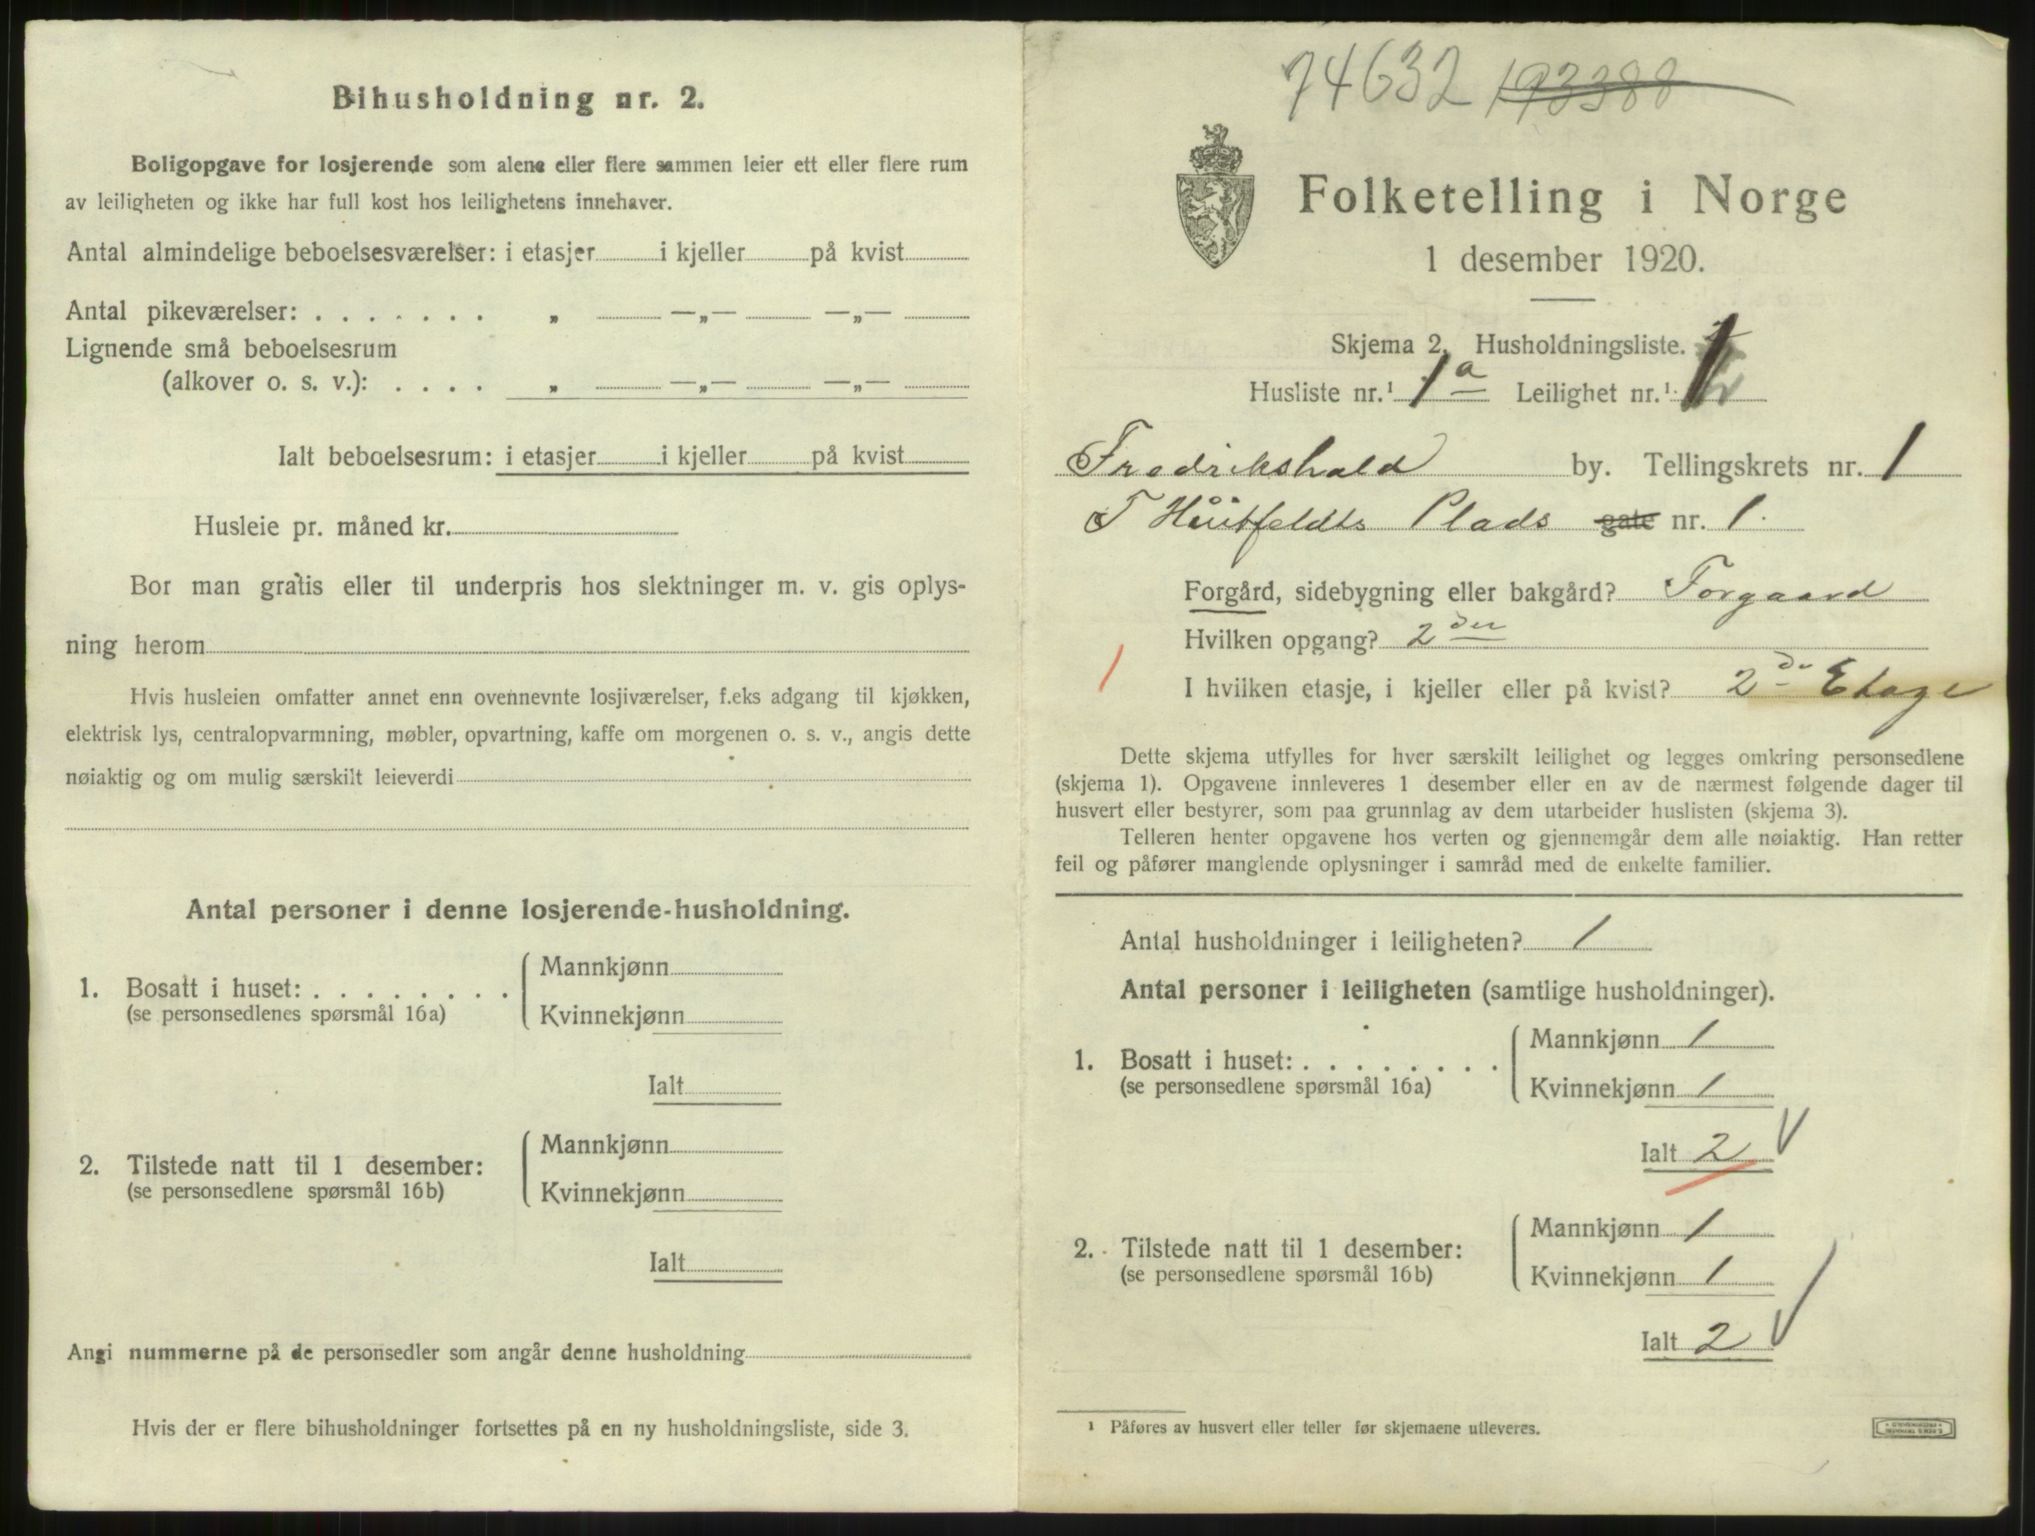 Bihusholdning nr. 2.
Boligopgave for losjerende som alene eller flere sammen leier ett eller flere rum
av leiligheten og ikke har full kost hos leilighetens innehaver.
Antal almindelige beboelsesværelser: i etasjer i kjeller på kvist
Antal pikeværelser: . . . . . . . „ —„— —„—
Lignende små beboelsesrum
(alkover o. s. v.): . . . . „ —„— —„—
Ialt beboelsesrum: i etasjer i kjeller på kvist
Husleie pr. måned kr.
Bor man gratis eller til underpris hos slektninger m. v. gis oplys-
ning herom
Hvis husleien omfatter annet enn ovennevnte losjiværelser, f.eks adgang til kjøkken,
elektrisk lys, centralopvarmning, møbler, opvartning, kaffe om morgenen o. s. v., angis dette
nøiaktig og om mulig særskilt leieverdi
Antal personer i denne losjerende-husholdning.
Mannkjønn
1. Bosatt i huset: . . . . . . . .
(se personsedlenes spørsmål 16a)
Kvinnekjønn
Ialt
Mannkjønn
2. Tilstede natt til 1 desember:
(se personsedlene spørsmål 16b)
Kvinnekjønn
Ialt
Angi nummerne på de personsedler som angår denne husholdning
Hvis der er flere bihusholdninger fortsettes på en ny husholdningsliste, side 3.
74632 193388
Folketelling i Norge
1 desember 1920.
Skjema 2. Husholdningsliste.
Husliste nr.¹ 1a Leilighet nr.¹ 1
Fredrikshald by. Tellingskrets nr. 1
T Huitfeldts Plads gate nr. 1.
Forgård, sidebygning eller bakgård? Forgaard
Hvilken opgang? 2den
I hvilken etasje, i kjeller eller på kvist? 2de Etage
1
Dette skjema utfylles for hver særskilt leilighet og legges omkring personsedlene
(skjema 1). Opgavene innleveres 1 desember eller en av de nærmest følgende dager til
husvert eller bestyrer, som paa grunnlag av dem utarbeider huslisten (skjema 3).
Telleren henter opgavene hos verten og gjennemgår dem alle nøiaktig. Han retter
feil og påfører manglende oplysninger i samråd med de enkelte familier.
Antal husholdninger i leiligheten? 1
Antal personer i leiligheten (samtlige husholdninger).
Mannkjønn 1
1. Bosatt i huset: . . . . . . . .
(se personsedlene spørsmål 16a)
Kvinnekjønn 1
Ialt 2
Mannkjønn 1
2. Tilstede natt til 1 desember:
(se personsedlene spørsmål 16b)
Kvinnekjønn 1
Ialt 2
¹ Påføres av husvert eller teller før skjemaene utleveres.